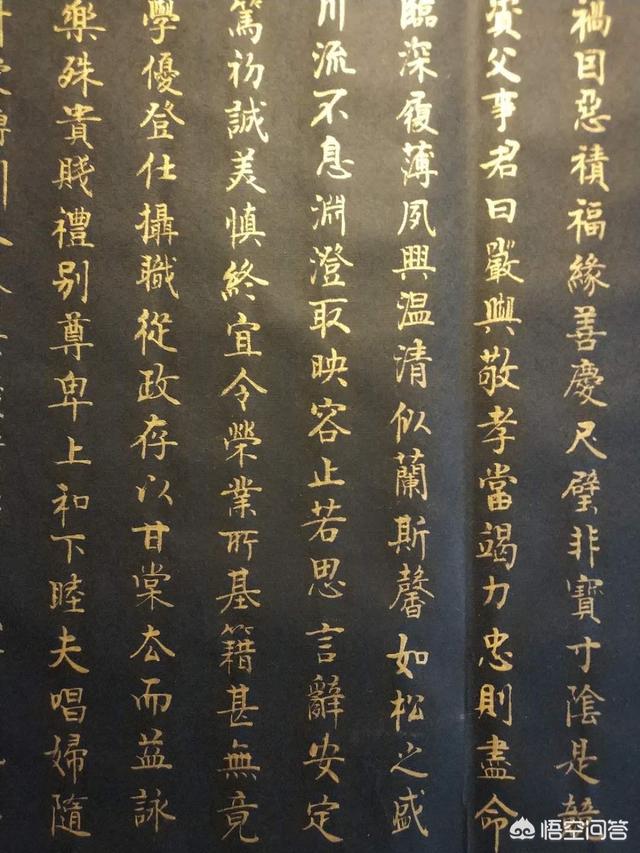 禍因惡積福緣善慶尺璧非寶寸陰是競
資父事君曰嚴與敬孝當竭力忠則盡命
臨深履薄夙興温清似蘭斯馨如松之盛
川流不息淵澄取映容止若思言辭安定
篤初誠美慎終宜令榮業所基籍甚無竟
學優登仕攝職從政存以甘棠去而益詠
樂殊貴賤禮別尊卑上和下睦夫唱婦隨
悟空问答